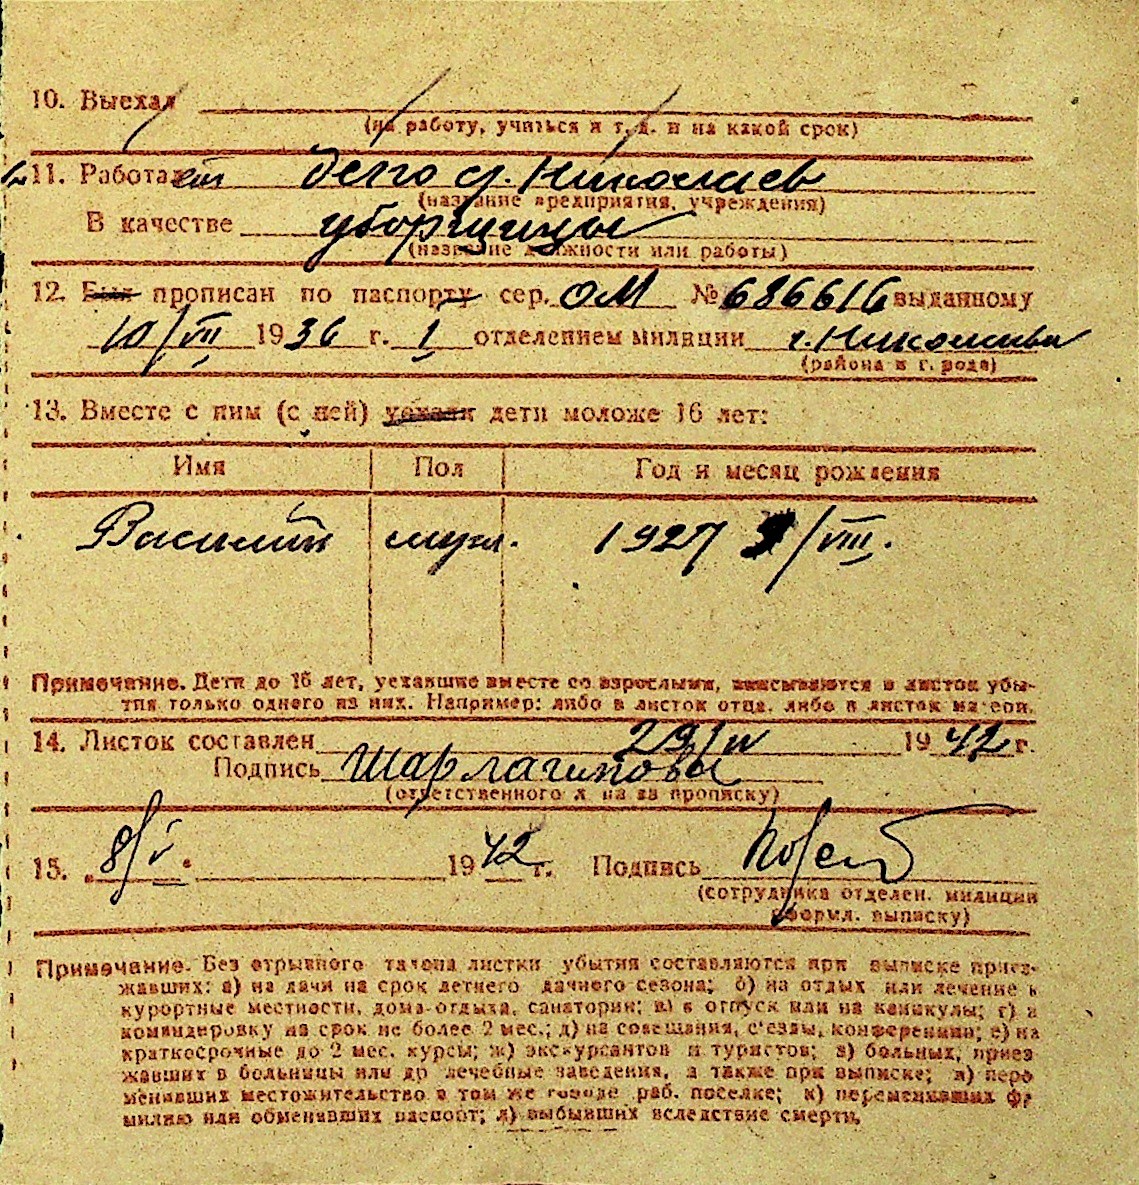 10. Выехал
(на работу, учиться и т. д. и на какой срок)
11. Работает Депо ст. Николаев
(название предприятия, учреждения)
В качестве уборщицы
(название должности или работы)
12. Был прописан по паспорту сер. ОМ № 686616 выданному
10/VII 1936 г. I отделением милиции г. Николаева
(района и г. рода)
13. Вместе с ним (с ней) уехали дети моложе 16 лет:
Имя Пол Год и месяц рождения
Василий муж. 1927 /VIII.
Примечание. Дети до 16 лет, уехавшие вместе со взрослыми, вписываются в листок убы-
тия только одного из них. Например: либо в листок отца, либо в листок матери.
14. Листок составлен 29/IV 1942 г.
Подпись
(ответственного л на за прописку)
15. 8/V. 1942 г. Подпись
(сотрудника отделен. милиции
оформл. выписку)
Примечание. Без отрывного талона листки убытия составляются при выписке приез-
жавших: а) на дачи на срок летнего дачного сезона; б) на отдых или лечение в
курортные местности, дома-отдыха, санатории; в) в отпуск или на каникулы; г) в
командировку на срок не более 2 мес.; д) на совещания, с'езды, конференции; е) на
краткосрочные до 2 мес. курсы; ж) экскурсантов и туристов; з) больных, приез
жавших в больницы или др лечебные заведения, а также при выписке; и) пере
менивших местожительство в том же городе раб. поселке; к) переменивших фа
милию или обменявших паспорт; л) выбывших вследствие смерти.